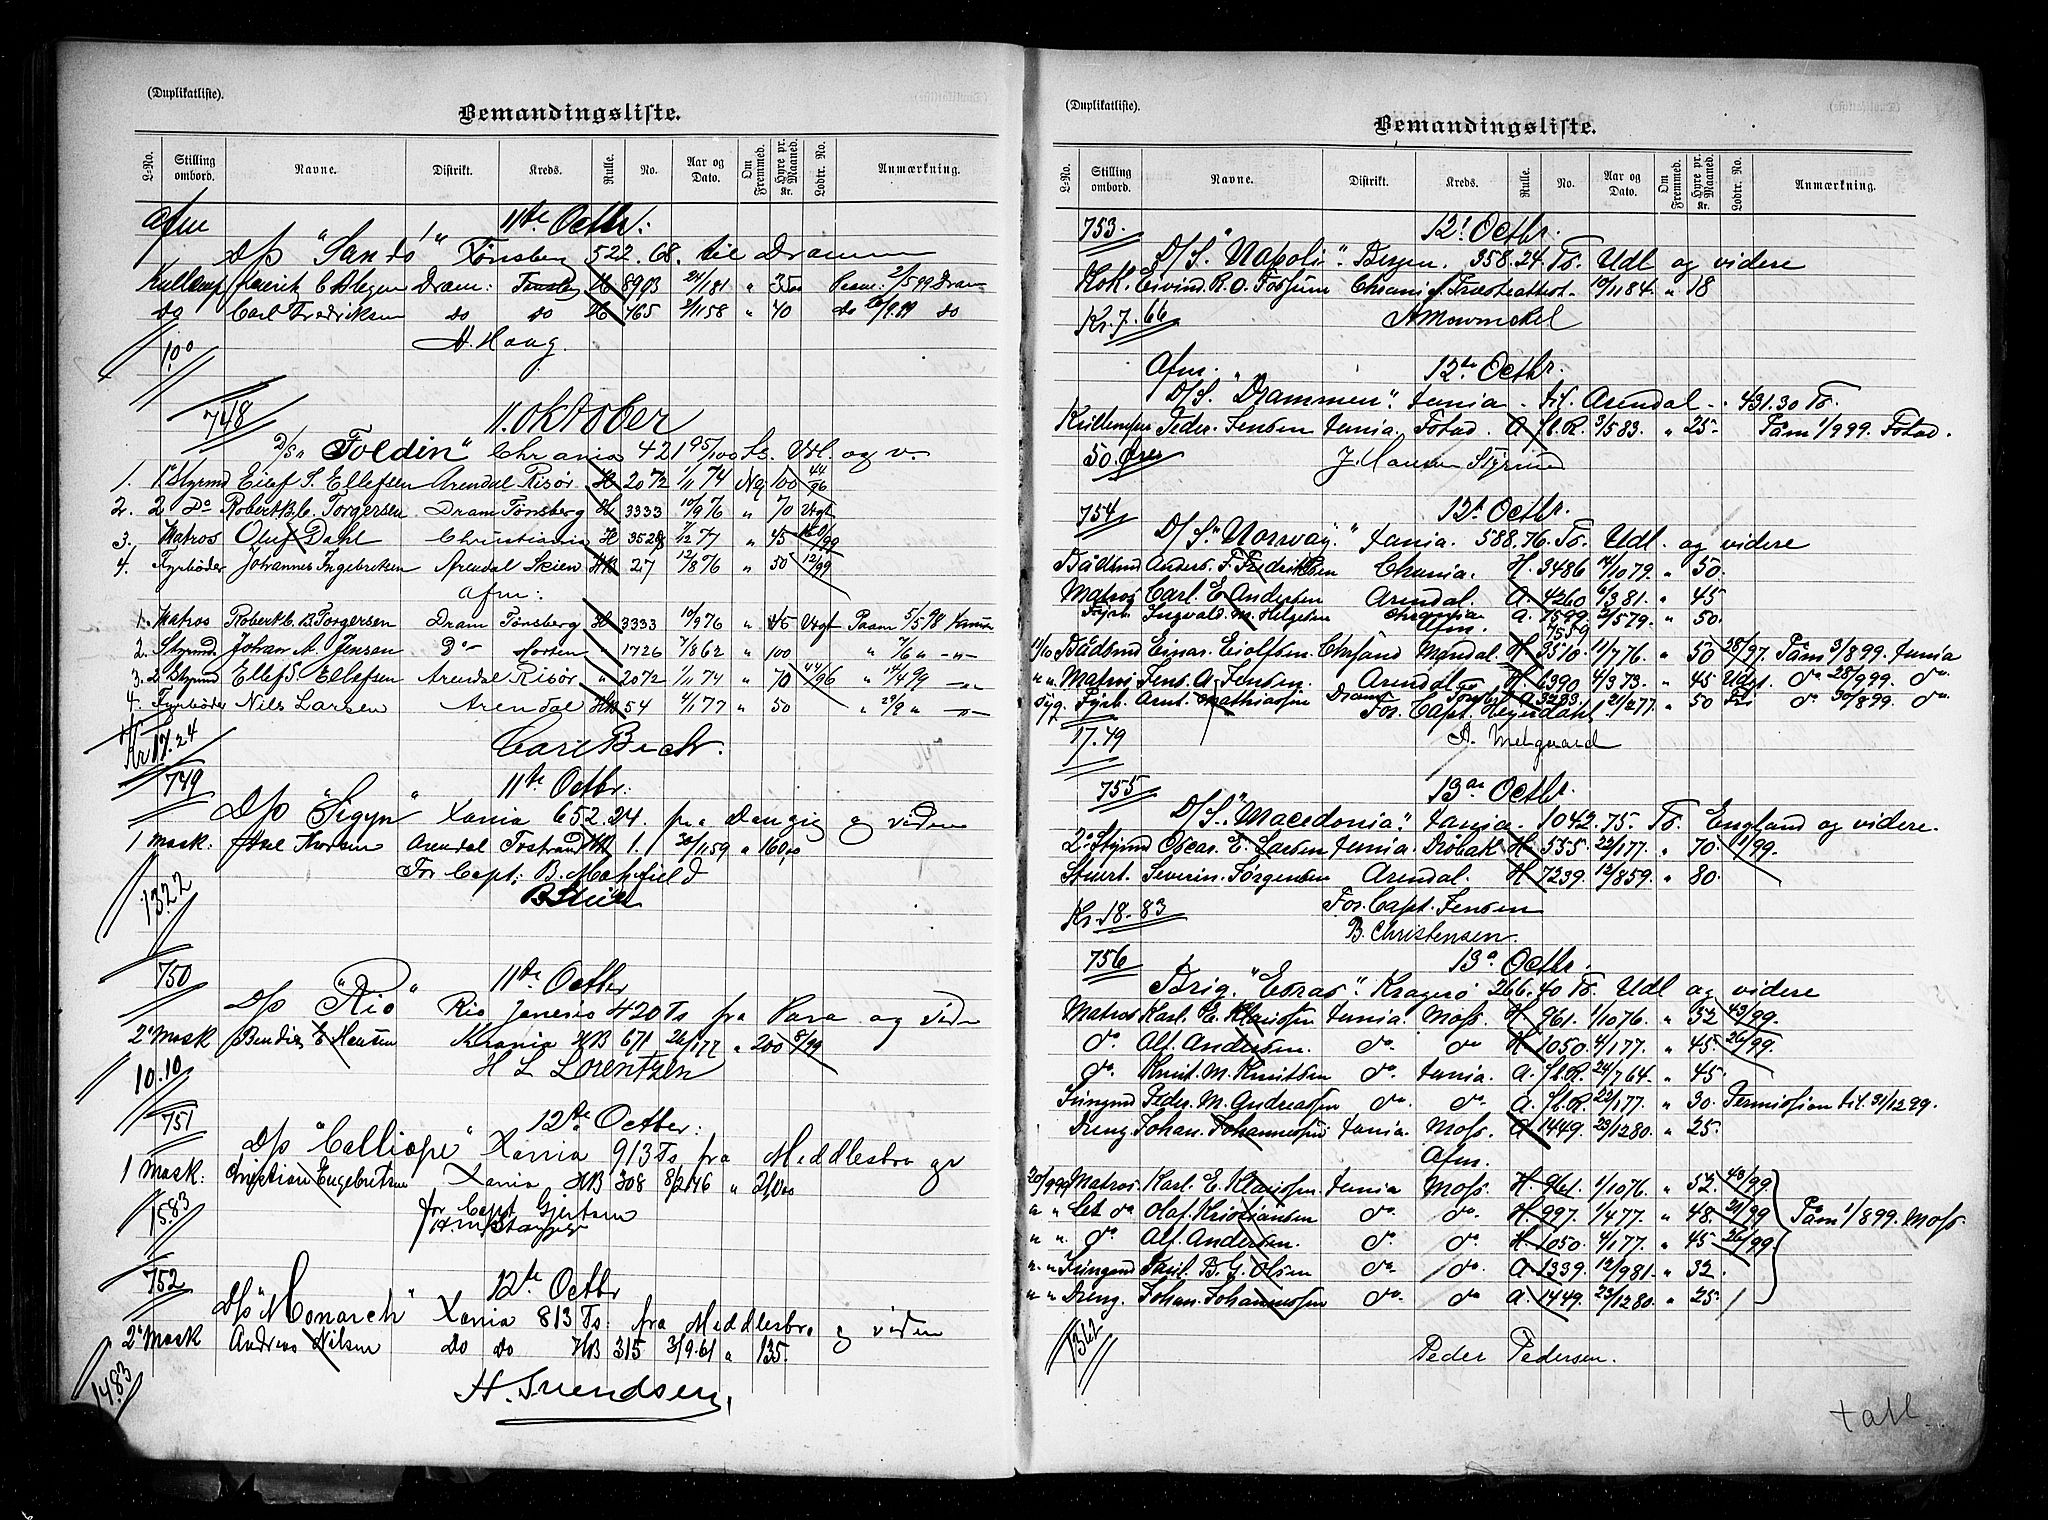 (Duplikatliste).
Bemandingsliste.
L-No. Stilling ombord. Navne. Distrikt. Kreds. Rulle. No. Aar og Dato. Om Fremmed. Hyre pr. Maaned. Kr. Lodtr. No. Anmærkning.
Afm 11te Octbr.
D/S "Sandö" Tönsberg 522.68. til Drammen
Kullemp Henrik Dram: H 8903 24/1 81 " 35.00
do Carl Fredriksen do do H 465 2/11 58 " 40 do do
1.00 A. Haag.
748 11. Oktober
D/S "Foldin" Chrania 421 95/100 Ts. Udl. og v.
1. 1 Styrmd Eilef S. Ellefsen Arendal Risör H 2072 1/11 74 Ng 100 44/96
2. 2 Do Robert B.C. Torgersen Dram Tønsberg H 3333 10/9 76 " 70 Udgt
3. Matros Oluf Dahl Christiania H 3528 7/12 77 " 45
4. Fyrböder Johannes Ingebriksen Arendal Skien HB 27 12/8 76 " 50 12/99
Afm:
1. Matros Robert C. B. Torgersen Dram Tønsberg H 3333 10/9 76 " 45 Udgt Paam 5/5 98
2. Styrmd. Johan A. Jensen Do Horten " 1726 7/8 62 " 100 " 7/6 " -"-
3. 2 Styrmd Ellef S. Ellefsen Arendal Risör " 2072 1/11 74 " 70 44/96 " 14/4 99 -"-
4. Fyrböder Nils Larsen Arendal HB 54 4/1 77 " 50 " 29/9 " -"-
Kr 17.24 Carl Bech.
749 11te Octbr.
D/S "Sigyn" Xania 652.24. fra Danzig og viden
1 Mask. Axel Thorsen Arendal HB 1. 30/11 59 " 160,00
For Capt: B. Motzfeld
13.22
750 11te Octber
D/S "Rio" Rio Janeiro 420 Ts fra Para og vide
2 Mask Bendix E Hansen Krania HB 671 26/1 77 " 200 8/99
10.10 H L Lorentzen
751 12te Octber:
D/S "Calliope" Xania 913 Ts fra Meddlesbro og
1 Mask: Christian Engebretsen Xania HB 308 8/2 46 " 210.00
15.83 for Capt Gjertsen
752 12te Octbr
D/S "Monarch" Xania 813 Ts. fra Meddlesbro og viden
2 Mask Andreas Nilsen Do Do HB 315 3/9.61 " 135.
14.83 H. Svendsen.
(Duplikatliste).
Bemandingsliste.
L-No. Stilling ombord. Navne. Distrikt. Kreds. Rulle. No. Aar og Dato. Om Fremmed. Hyre pr. Maaned. Kr. Lodtr. No. Anmærkning.
753. 12t Octbr.
D/S. "Napoli". Bergen. 358.24. Ts. Udl og videre
Kok. Eivind. R. O. Fossum Chrania 10/11 84. " 18
Kr. 7.66 A Mowinckel
Afm. 12te Octbr.
D/S. "Drammen". Xania. til Arendal. 431.30 Ts.
Kullemper Peder. Jensen Xania. Fstad. A fl.R. 3/5 83. " 25. Paam 1/9 99. Fstad.
50. Øre J. Hansen Styrmd
754 12t Octbr.
D/S. "Norway." Xania. 588.76. Ts. Udl. og videre
Bådsmd Anders. F. Fredriksen Chrania. H. 3486 14/10 79. " 50.
Matros Carl. E. Andersen Arendal. A. 4260 6/3 81. " 45
Fyrb. Ingvald. M. Helgesen Chrania A. 7599 2/5 79. " 50.
Afm. 7559
11/10 Bådsmd Einar. Eiolfsen. Chrsand Mandal. H. 3510. 11/7 76. " 50 28/97. Påm. 3/8 99. Xania
" " Matros Jens. A. Jensen. Arendal. H 6390 4/3 73. " 45 Udgt. do 28/9 99. do
Fyrb. Arnt. Mathiassen Dram. A 3283. 21/2 77. " 50 Fri do 30/8 99. do
For. Capt. Heyerdahl.
17.79 A. Melgaard
755 13de Octbr.
D/S. "Macedonia". Xania. 1042.75. Ts. England og videre.
2. Styrmd Oscar. E. Larsen Xania. Drøbak H. 555 22/1 77. " 70. 11/99.
Stuert. Severin. Jørgensen Arendal. H. 7239. 12/8 59. " 80.
For. Capt. Jensen
Kr. 18.83
B. Christensen.
756 13de Octbr.
Brig. "Esras". Kragerö 266.40 Ts. Udl og videre
Matros Karl. E. Klausen Xania. Moss. H. 961. 1/10 76. " 52 43/99.
do. Alf. Andersen. do. do H 1050. 4/1 77. " 45. 26/99.
do. Knut. M. Knutsen do. Xania. A. fl.R. 24/7 64. " 45.
Jungmd Peder. M. Andreassen do. do. A. fl.R. 22/1 77. " 30. Permission til. 31/12 99.
Dreng. Johan. Johannessen Xania. Moss. A. 1449. 23/12 80. " 25.
Afm.
20/9 99 Matros. Karl. E. Klausen. Xania Moss. H. 961. 1/10 76. " 52. 43/99.
" " Let do Olaf. Kristiansen do. do. H. 997. 1/4 77. " 48. 21/99 Påm 1/8 99. Moss.
" ". do. Alf. Andersen. do. do. H. 1050. 4/1 77. " 45 26/99.
" " Jungmd Karl. B. G. Olsen do. do A 1339. 12/9 81. " 32.
" " Dreng. Johan. Johannessen do. do A. 1449. 23/12 80. " 25.
13.62
Peder Pedersen.